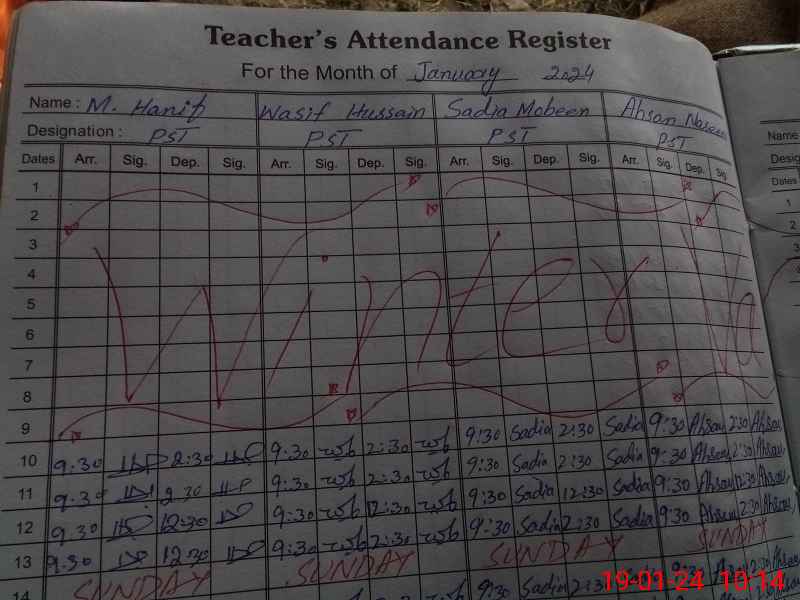 Teacher's Attendance Register
For the Month of January 2024
Name : M. Hanif Wasif Hussain Sadia Mobeen Ahsan Naseem Name
Designation : PST PST PST PST Desig
Dates Arr. Sig. Dep. Sig. Arr. Sig. Dep. Sig. Arr. Sig. Dep. Sig. Arr. Sig. Dep. Sig. Dates
1 1
2 2
3 3
4
5
6
7
8
Winter Va
9
10 9:30 2:30 9:30 2:30 9:30 Sadia 2:30 Sadia 9:30 Ahsan 2:30 Ahsan
11 9:30 2:30 9:30 2:30 9:30 Sadia 2:30 Sadia 9:30 Ahsan 2:30 Ahsan
12 9:30 12:30 9:30 12:30 9:30 Sadia 12:30 Sadia 9:30 Ahsan 12:30 Ahsan
13 9:30 12:30 9:30 2:30 9:30 Sadia 2:30 Sadia 9:30 Ahsan 2:30 Ahsan
SUNDAY SUNDAY SUNDAY SUNDAY
14 9:30 Sadia 2:30 9:30 Ahsan 2:30 Ahsan
19-01-24 10:14